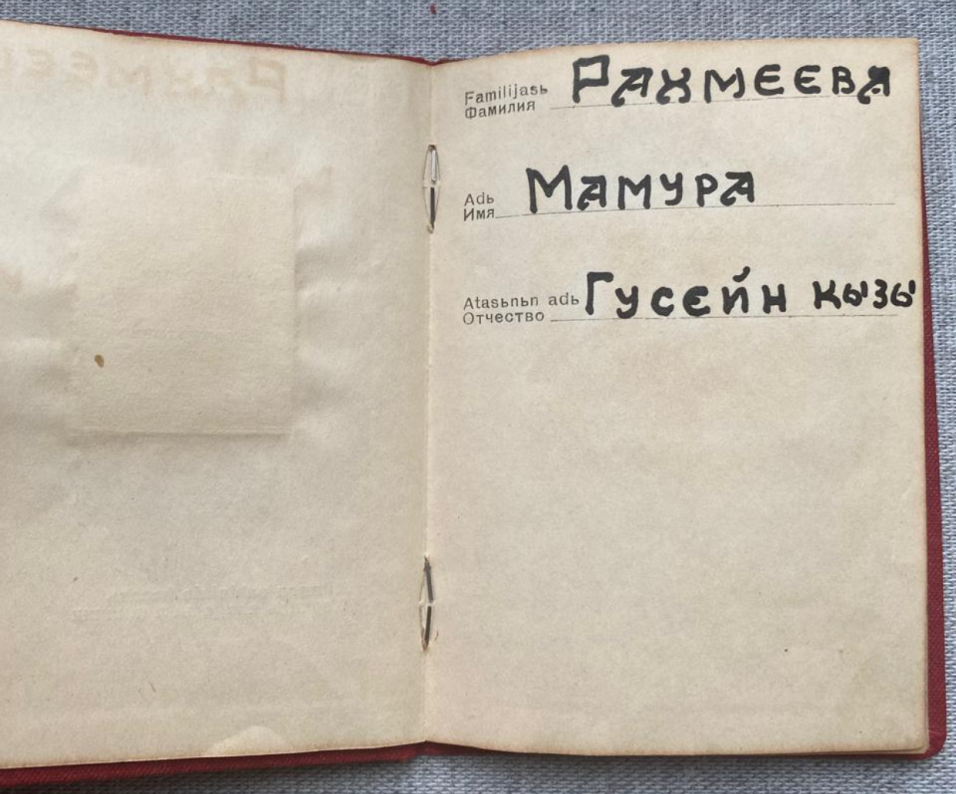 Familijasь Рахмеева
Фамилия
Adь Мамура
Имя
Atasьnьn adь Гусейн кызы
Отчество